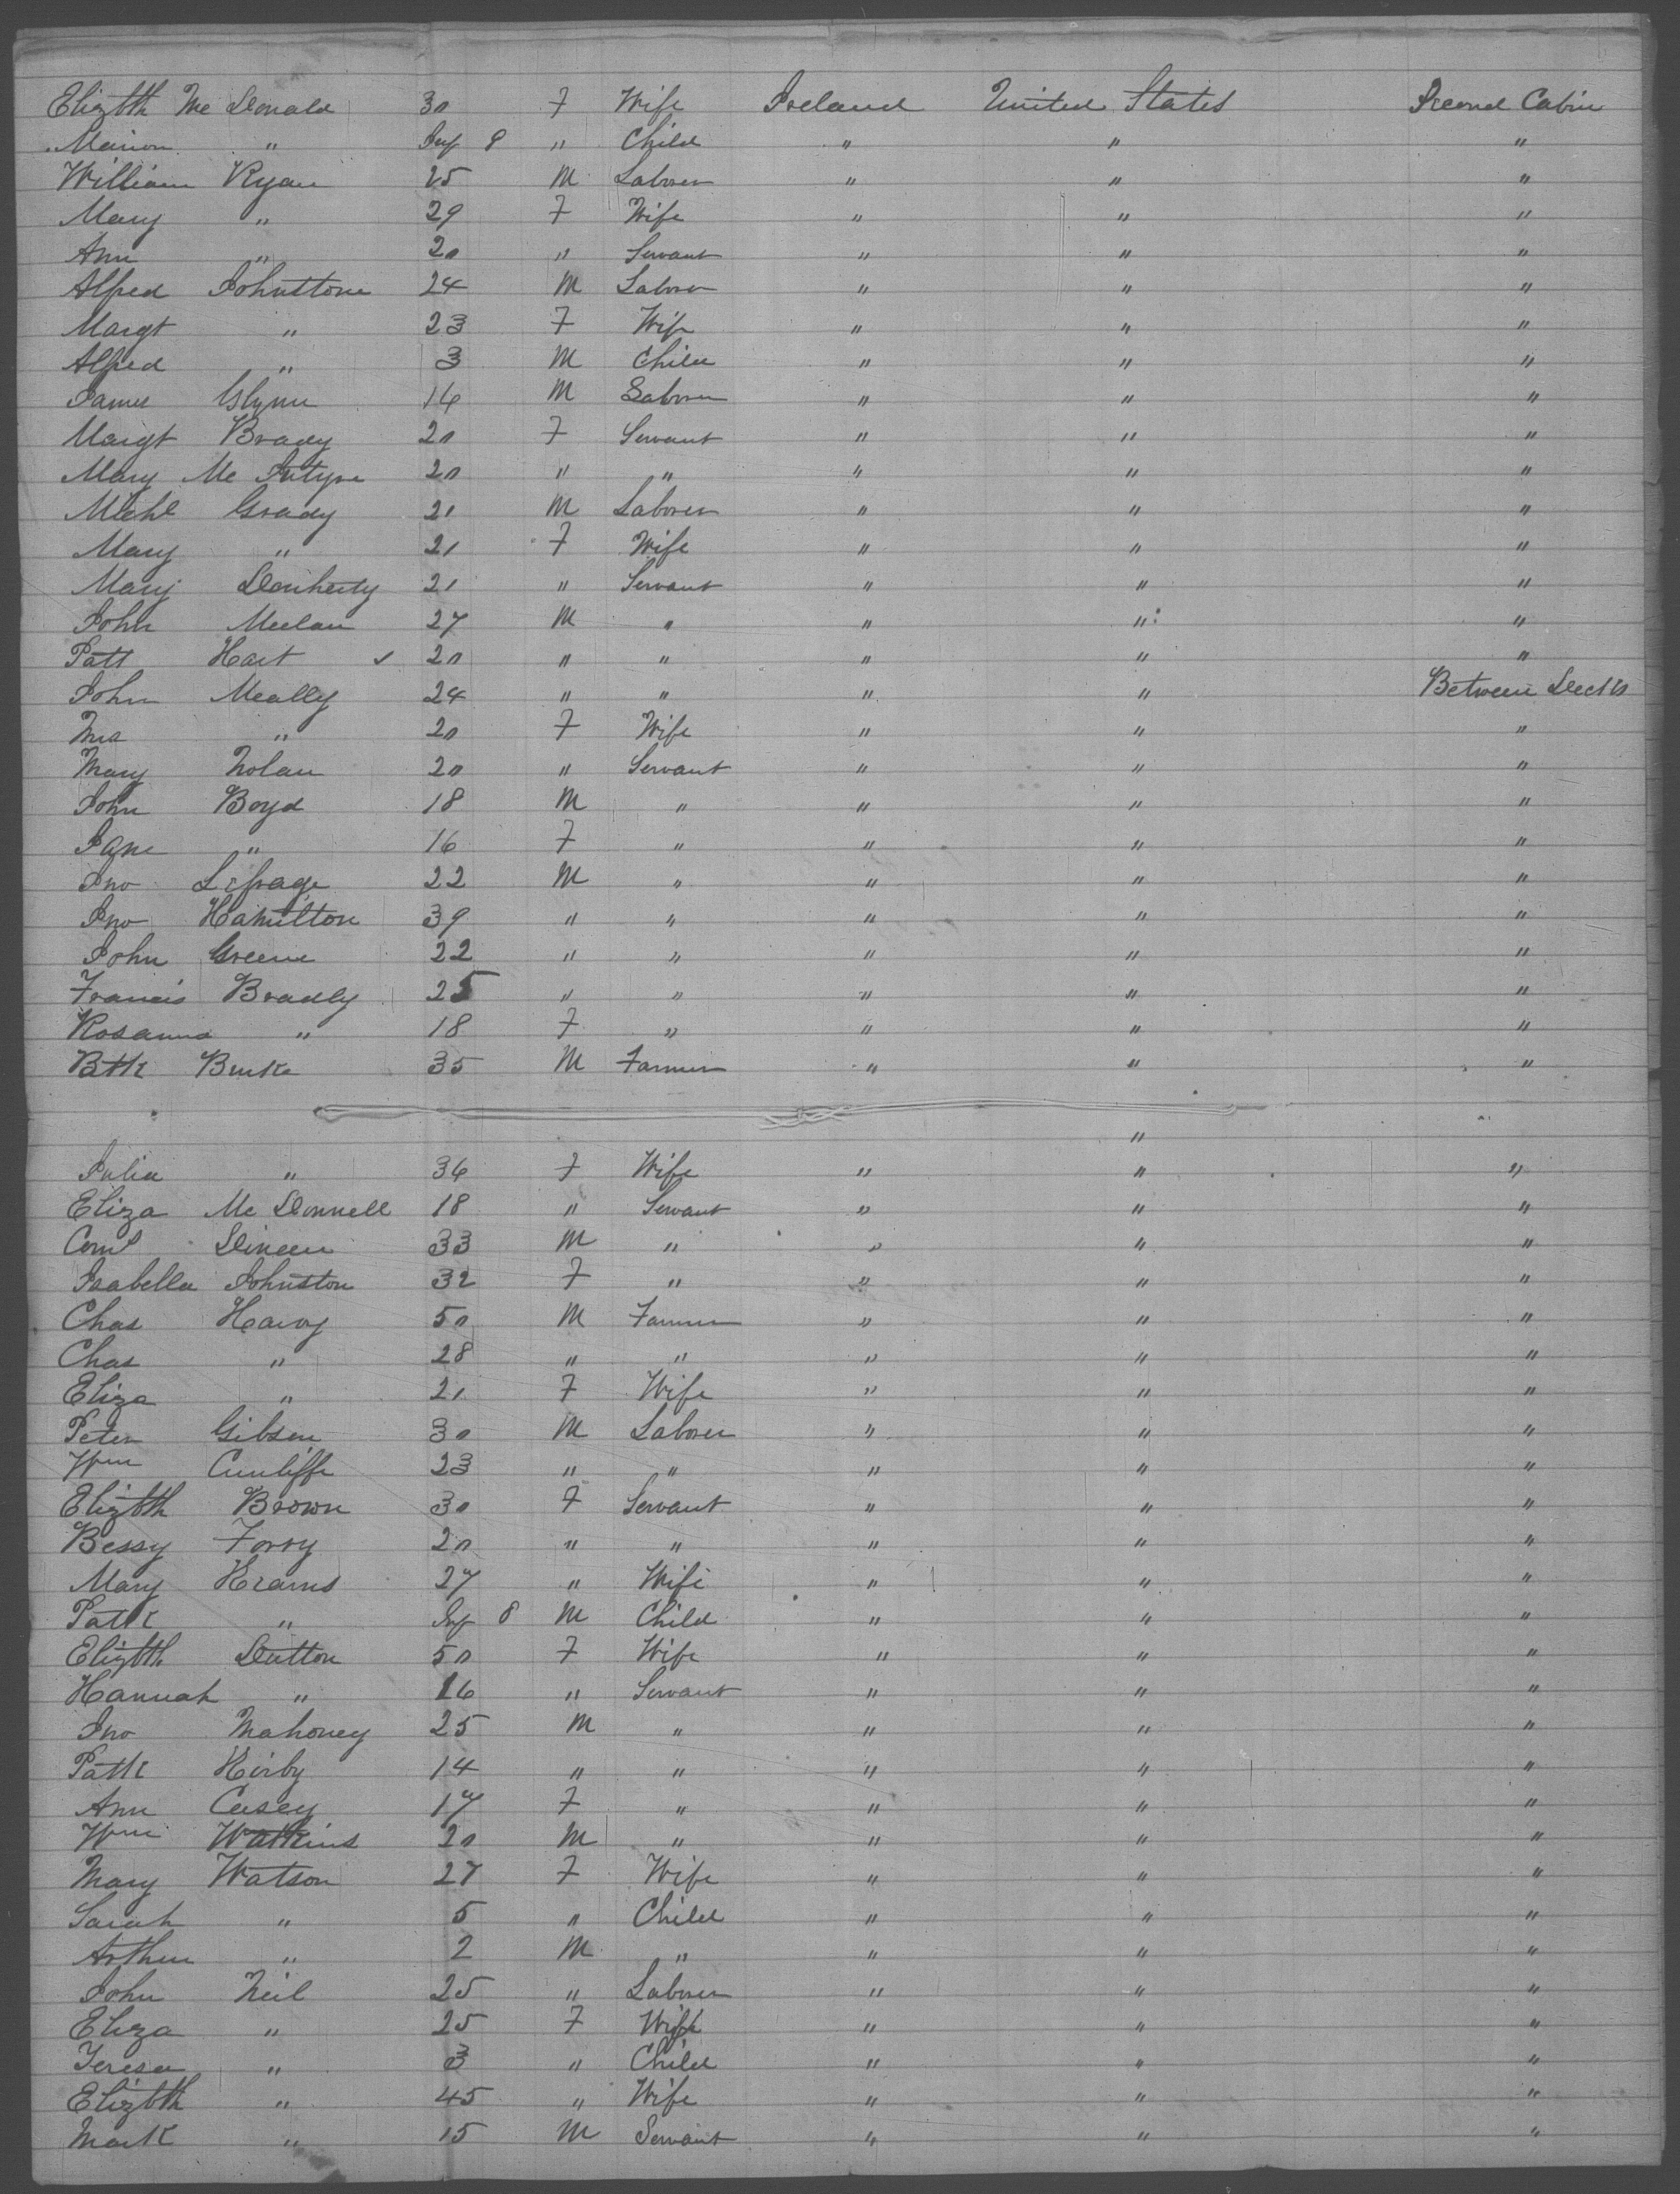 Elizbth Mc Donald 30 F Wife Ireland United States Second Cabin
Marion " Inf 8 " Child " " "
William Ryan 25 M Laborer " " "
Mary " 29 F Wife " " "
Ann " 20 " Servant " " "
Alfred Johnstone 24 M Laborer " " "
Margt " 23 F Wife " " "
Alfred " 3 M Child " " "
James Glynn 16 M Laborer " " "
Margt Brady 20 F Servant " " "
Mary Mc Intyre 20 " " " " "
Michl Grady 21 M Laborer " " "
Mary " 21 F Wife " " "
Mary Douherty 21 " Servant " " "
John Meelan 27 M " " " "
Patt Hart 20 " " " " "
John Meally 24 " " " " Between Decks
Mrs " 20 F Wife " " "
Mary Nolan 20 " Servant " " "
John Boyd 18 M " " " "
Jane " 16 F " " " "
Jno 22 M " " " "
Jno Hamilton 39 " " " " "
John Greene 22 " " " " "
Francis Bradly 25 " " " " "
Rosanna " 18 F " " " "
Burke 35 M Farmer " " "
"
Julia " 36 F Wife " " "
Eliza Mc Donnell 18 " Servant " " "
Corns Dineen 33 M " " " "
Isabella Johnston 32 F " " " "
Chas Harvy 50 M Farmer " " "
Chas " 28 " " " " "
Eliza " 21 F Wife " " "
Peter Gibson 30 M Laborer " " "
Wm Cunliffe 23 " " " " "
Elizbth Brown 30 F Servant " " "
Bessy Forry 20 " " " " "
Mary Kearns 27 " Wife " " "
Patk " Inf 8 M Child " " "
Elizbth Dutton 50 F Wife " " "
Hannah " 16 " Servant " " "
Jno Mahoney 25 M " " " "
Patk Kirby 14 " " " " "
Ann Casey 17 F " " " "
Wm Watkins 20 M " " " "
Mary Watson 27 F Wife " " "
Sarah " 5 " Child " " "
Arthur " 2 M " " " "
John Neil 25 " Laborer " " "
Eliza " 25 F Wife " " "
Teresa " 3 " Child " " "
Elizbth " 45 " Wife " " "
Mark " 15 M Servant " " "